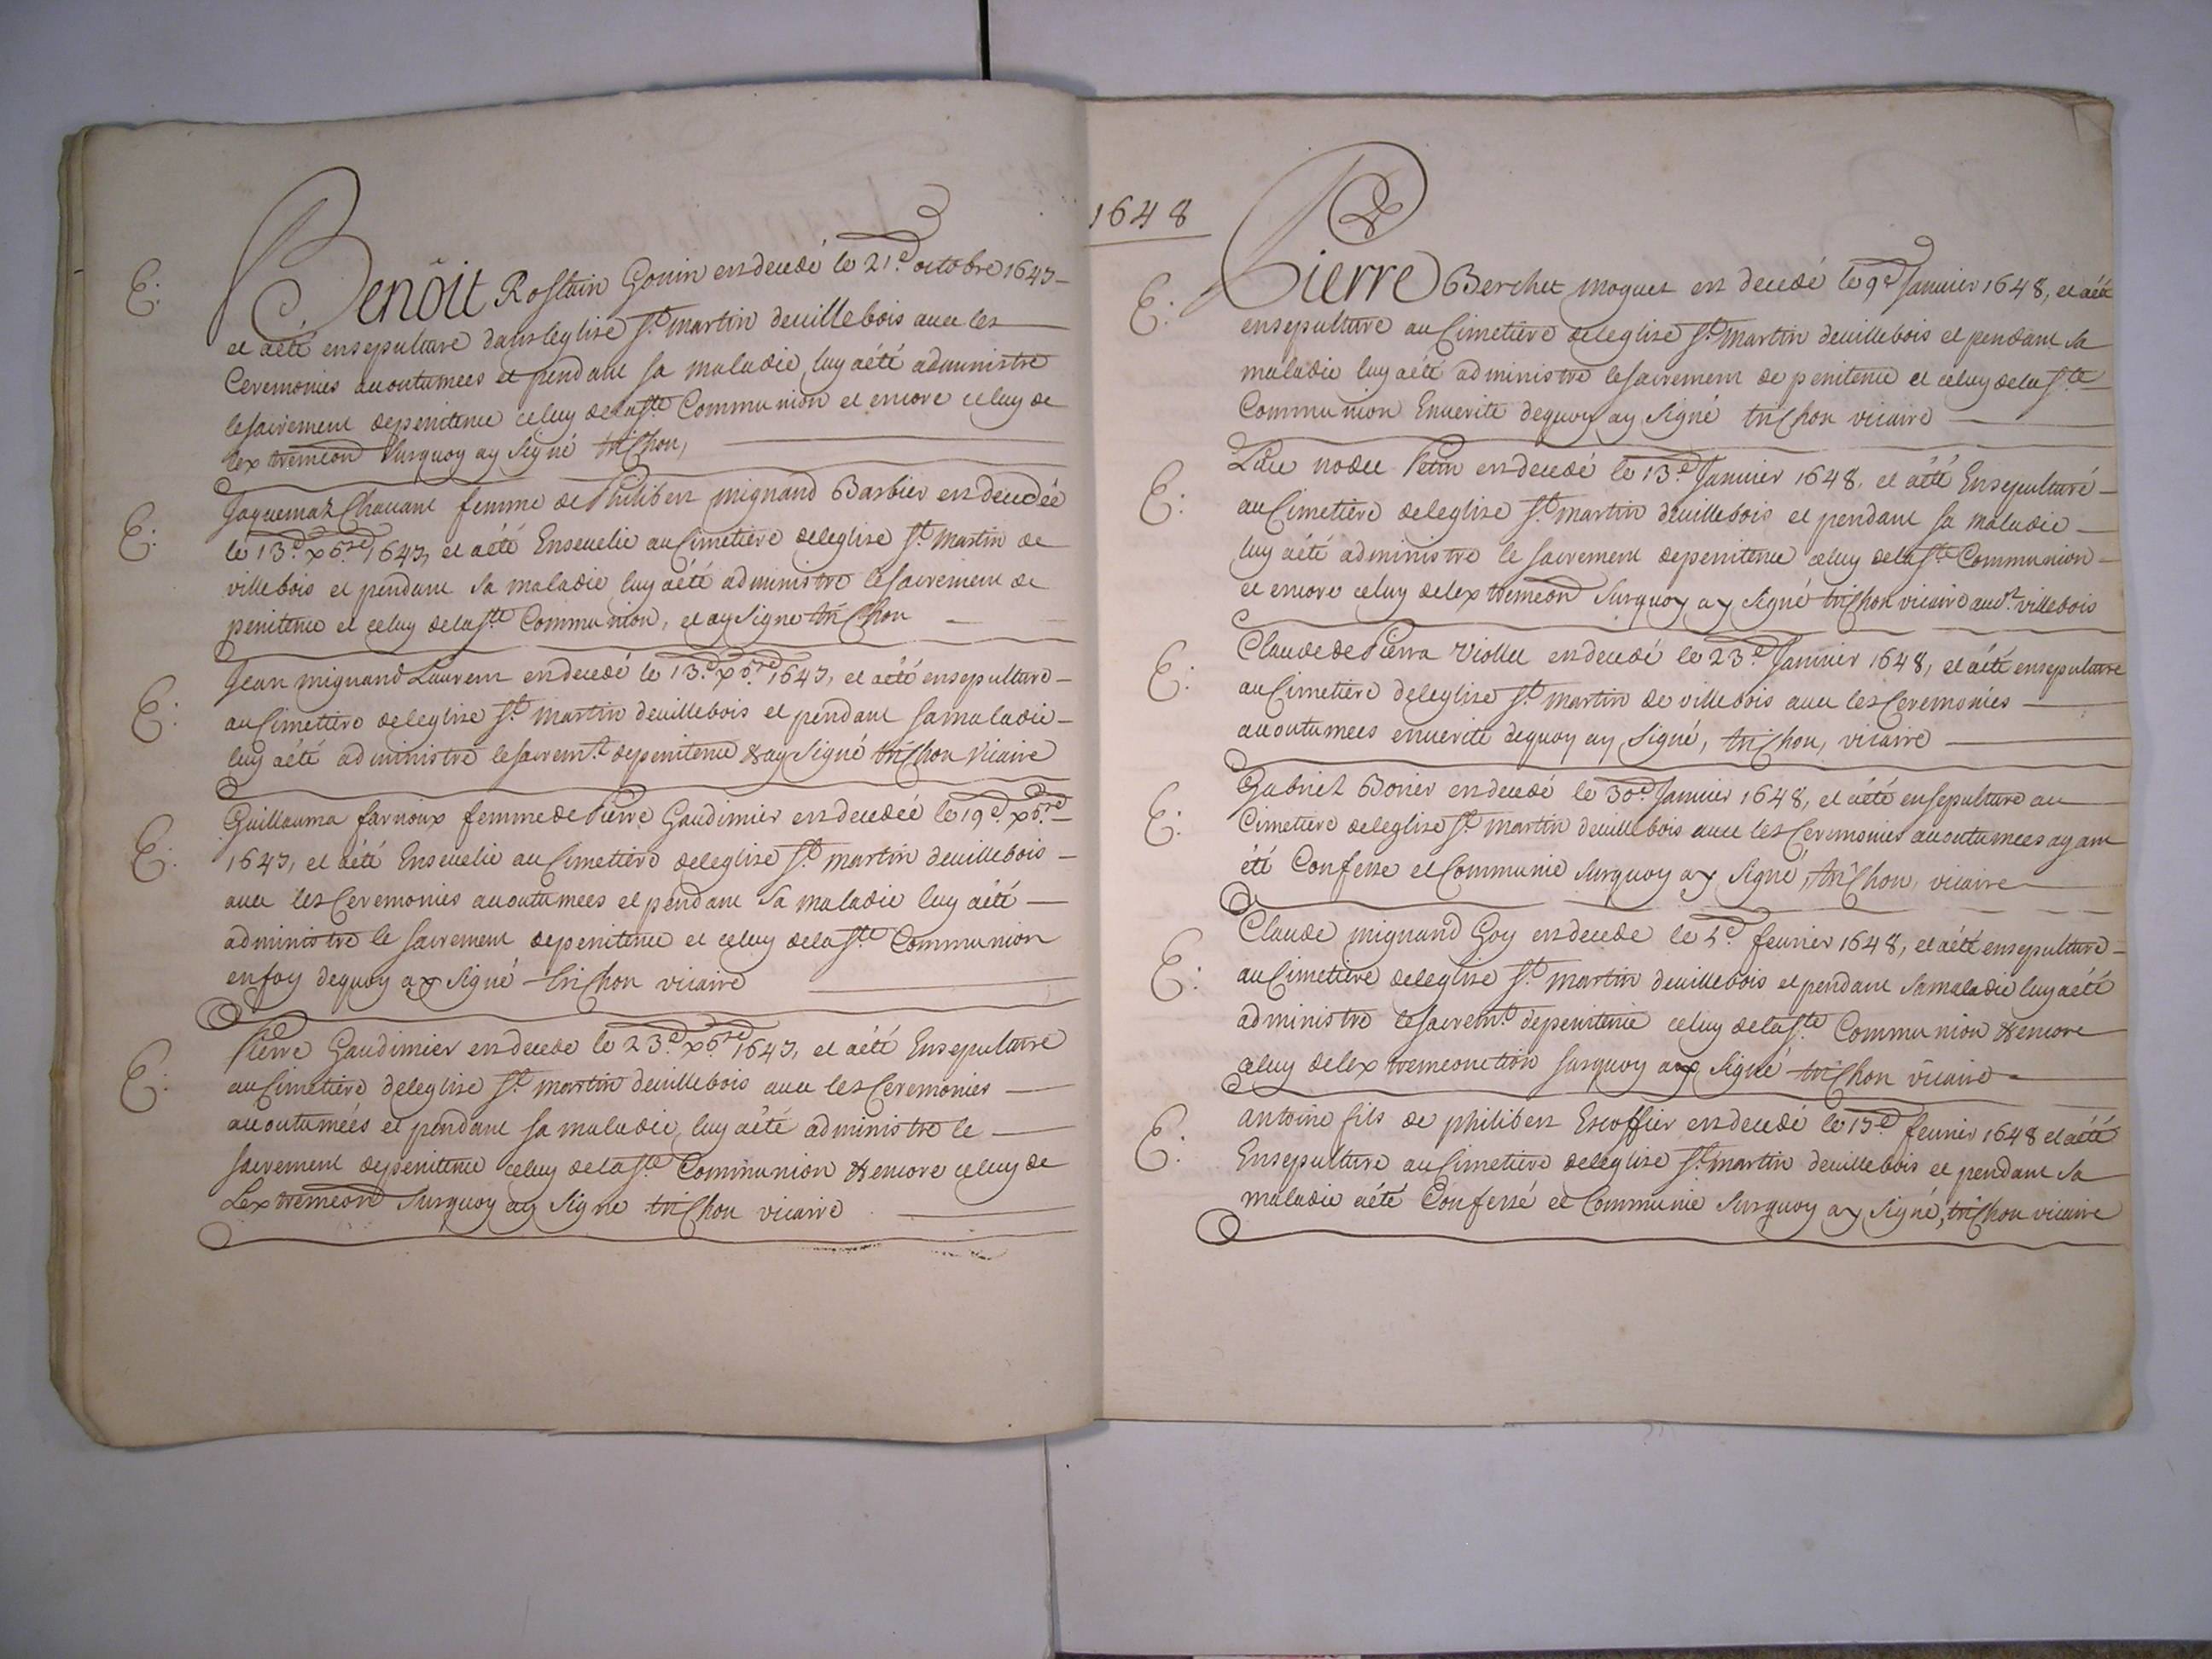 E.
Benôit Rostain Gonin est decedé le 21.e octobre 1647
et aété ensepulturé dansleglise St. martin deuillebois auec les
Ceremonies accoutumees et pendant sa maladie, luy aété administré
lesacrement depenitence celuy delaste Communion et encore celuy de
lextremeon Surquoy ay Signé trichon,
E.
Jaquemaz Chauant femme de Philibert mignand Barbier est decedée
le 13.e xbre 1647, et aété Enseuelie auCimetiere deleglise St. martin de
villebois et pendant sa maladie luy aété administré lesacrement de
penitence et celuy delaste Communion, et ay Signe trichon
E.
Jean mignand Laurent est decedé le 13.e xbre 1647, et aété ensepulturé
auCimetiere deleglise St. martin deuillebois et pendant samaladie
luy aété administré lesacremt. depenitence & ay Signé trichon Vicaire
E.
Guillauma farnoux femme de Pierre Gaudimier est decedée le 19e. xbre
1647, et aété Enseuelie auCimetiere deleglise St. martin deuillebois
auec les Ceremonies accoutumees et pendant Sa maladie luy aété
administré le sacrement depenitence et celuy delaste Communion
enfoy dequoy ay Signé trichon vicaire
E.
Pierre Gaudimier est decede le 23.e xbre 1647, et aété Ensepulturé
auCimetiere deleglise St. martin deuillebois auec les Ceremonies
accoutumées et pendant sa maladie, luy aété administré le
sacrement depenitence celuy delaste Communion & encore celuy de
Lextremeon Surquoy ay Signe trichon vicaire
1648
E.
Pierre Berchet moguet est decedé le 9e Januier 1648, et aété
ensepulturé auCimetiere deleglise St. martin deuillebois et pendant sa
maladie luy aété administré lesacrement de penitence et celuy delaste
Communion Enuerite dequoy ay Signé trichon vicaire
E.
est decedé le 13.e Januier 1648, et aété Ensepulturé
auCimetiere deleglise St. martin deuillebois et pendant sa maladie
luy aété administré le sacrement depenitence celuy delaste Communion
et encore celuy delextremeon Surquoy ay Signé trichon vicaire audt. villebois
E.
Claude de Pierra Viollet est decedé le 23.e Januier 1648, et aété ensepulturé
auCimetiere deleglise St. martin de villebois auec les Ceremonies
accoutumees enuerite dequoy ay Signé, trichon, vicaire
E.
Gabriel Bonier est decedé le 30e. Januier 1648, et aété ensepulturé au
Cimetiere deleglise St. martin deuillebois auec les Ceremonies accoutumees ayant
été Confesse et Communié Surquoy ay Signé, trichon, vicaire
E.
Claude mignand Goy est decede le 5e. feurier 1648, et aété ensepulturé
auCimetiere deleglise St. martin deuillebois et pendant Samaladie luy aété
administré lesacremt. depenitence celuy delaste Communion & encore
celuy delextremeonction surquoy ay Signé trichon vicaire
E.
antoine fils de philibert Escoffier est decedé le 15e feurier 1648 et aété
Ensepulturé auCimetiere deleglise St. martin deuillebois et pendant Sa
maladie aété Confessé et Communié Surquoy ay Signé, trichon vicaire